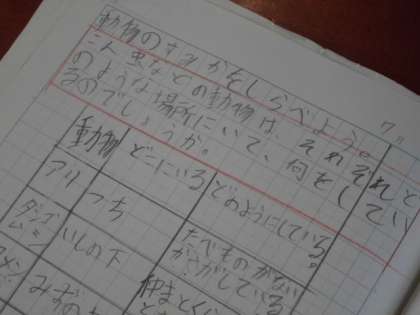 動物のすみかをしらべよう。
こん虫などの動物は、それぞれど
のような場所にいて、何をしてい
るのでしょうか。
動物 どこにいる どのようにしている。
アリ つち たべものがない
かさがしている
ダンゴ
ムシ いしの下